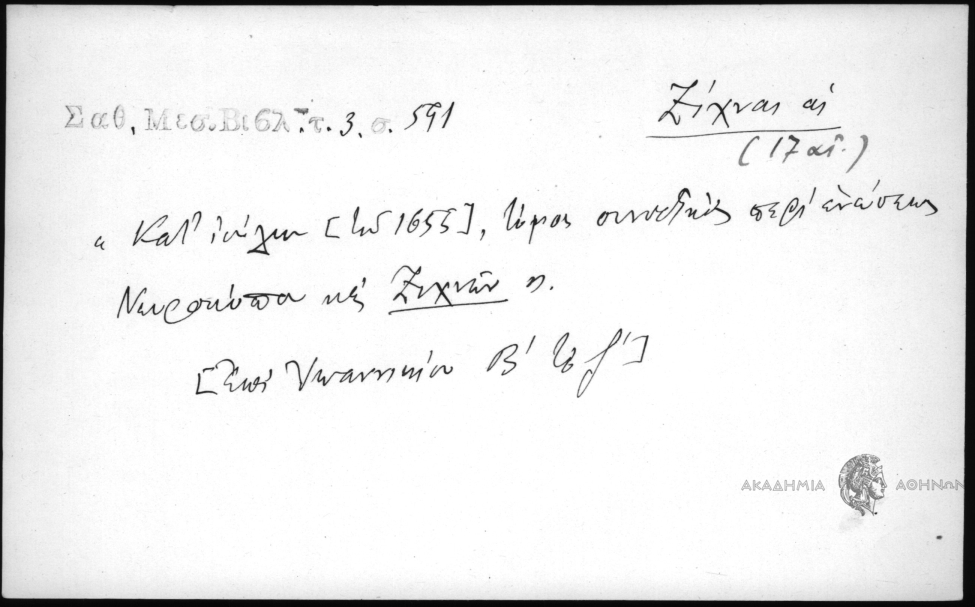 Σαθ. Μεσ. Βιβλ. τ. 3. σ. 591
Ζίχναι αἱ
(17 αἰ.)
« Κατ' ἰούλιον [τοῦ 1655], τόμος συνοδικὸς περὶ ἑνώσεως
Νευροκόπου καὶ Ζιχνῶν ».
[Ἐπὶ Ἰωαννικίου Β' τὸ γ']
ΑΚΑΔΗΜΙΑ ΑΘΗΝΩΝ